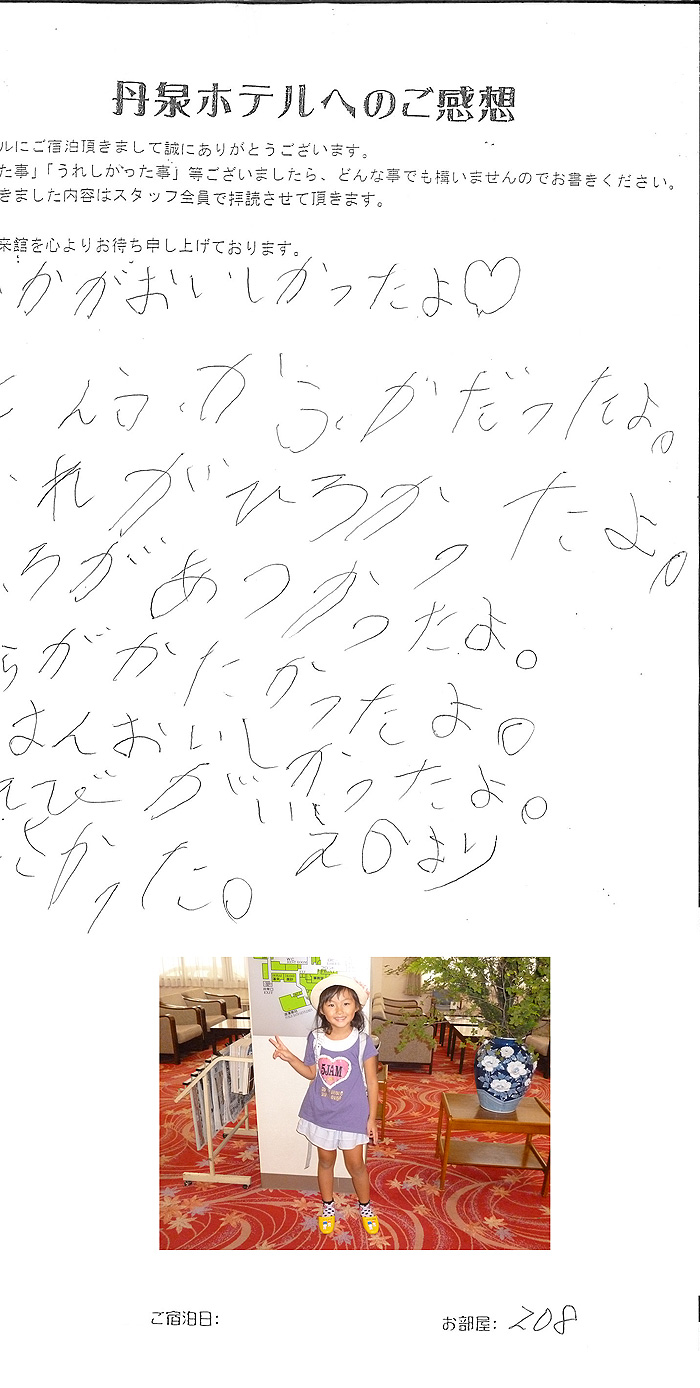 丹泉ホテルへのご感想
ルにご宿泊頂きまして誠にありがとうございます。
た事」「うれしかった事」等ございましたら、どんな事でも構いませんのでお書きください。
きました内容はスタッフ全員で拝読させて頂きます。
来館を心よりお待ち申し上げております。
かがおいしかったよ♡
んろ
かだったよ。
れがひろかったよ。
ろがあつかったよ。
らがかたかったよ。
はんおいしかったよ。
れびがいかったよ。
さかった。
より
5JAM
ご宿泊日:
お部屋: 208